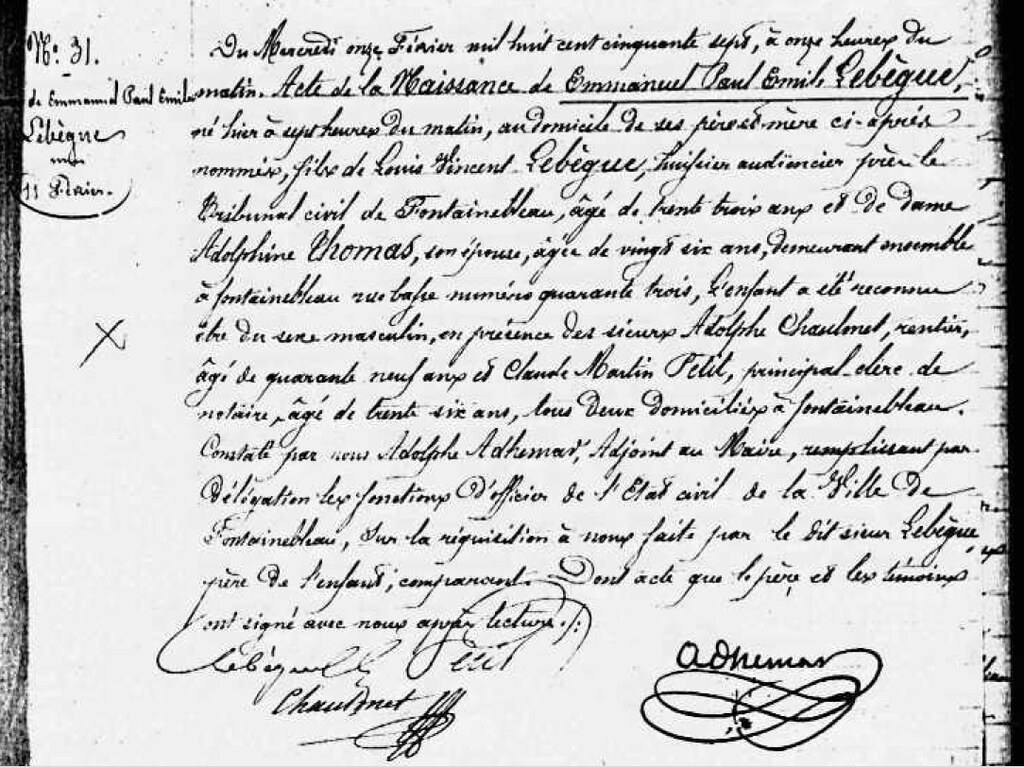 N°. 31.
de Emmanuel Paul Emile
Lebègue
11 Février.
Du Mercredi onze Février mil huit cent cinquante sept, à onze heures du
matin. Acte de la Naissance de Emmanuel Paul Emile Lebègue,
né hier à sept heures du matin, au domicile de ses père et mère ci-après
nommés, fils de Louis Vincent Lebègue, huissier audiencier près le
Tribunal civil de Fontainebleau, âgé de trente trois ans et de dame
Adolphine Thomas, son épouse, âgée de vingt six ans, demeurant ensemble
à fontainebleau rue basse numéro quarante trois, L'enfant a été reconnu
être du sexe masculin, en présence des sieurs Adolphe Chaulmet, rentier,
âgé de quarante neuf ans et Claude Martin Petit, principal clerc de
notaire, âgé de trente six ans, tous deux domiciliés à fontainebleau.
Constaté par nous Adolphe Adhemar, Adjoint au Maire, remplissant par
délégation les fonctions d'officier de l'Etat civil de la Ville de
Fontainebleau, Sur la réquisition à nous faite par le dit sieur Lebègue,
père de l'enfant, comparant. Dont acte que le père et les témoins
ont signé avec nous après lecture./:
Lebègue Petit adhemar